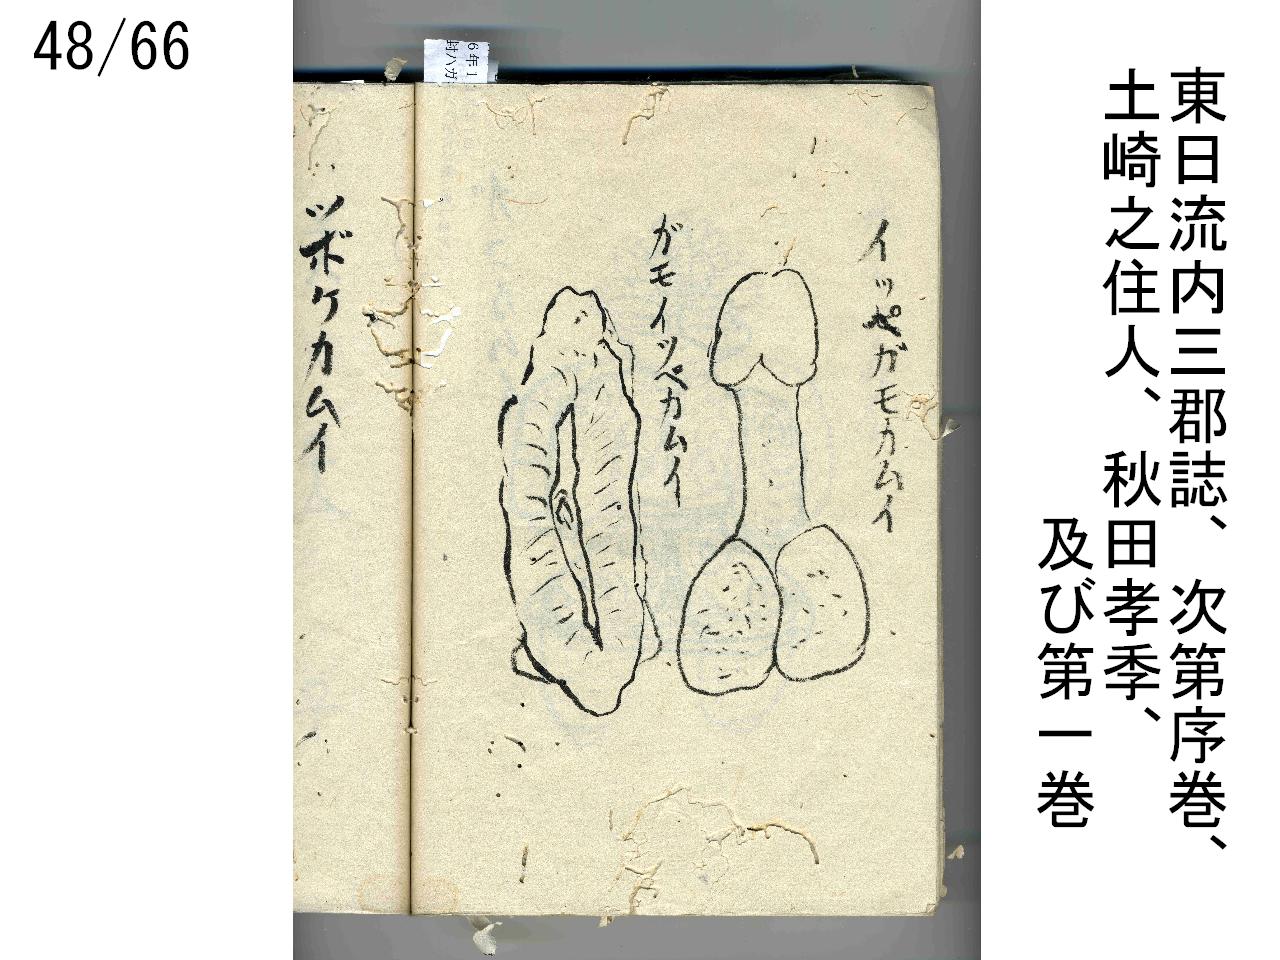 48/66
東日流内三郡誌、次第序巻、
土崎之住人、秋田孝季、
及び第一巻
6年1
封ハガ
イッペガモカムイ
ガモイッペカムイ
ツボケカムイ